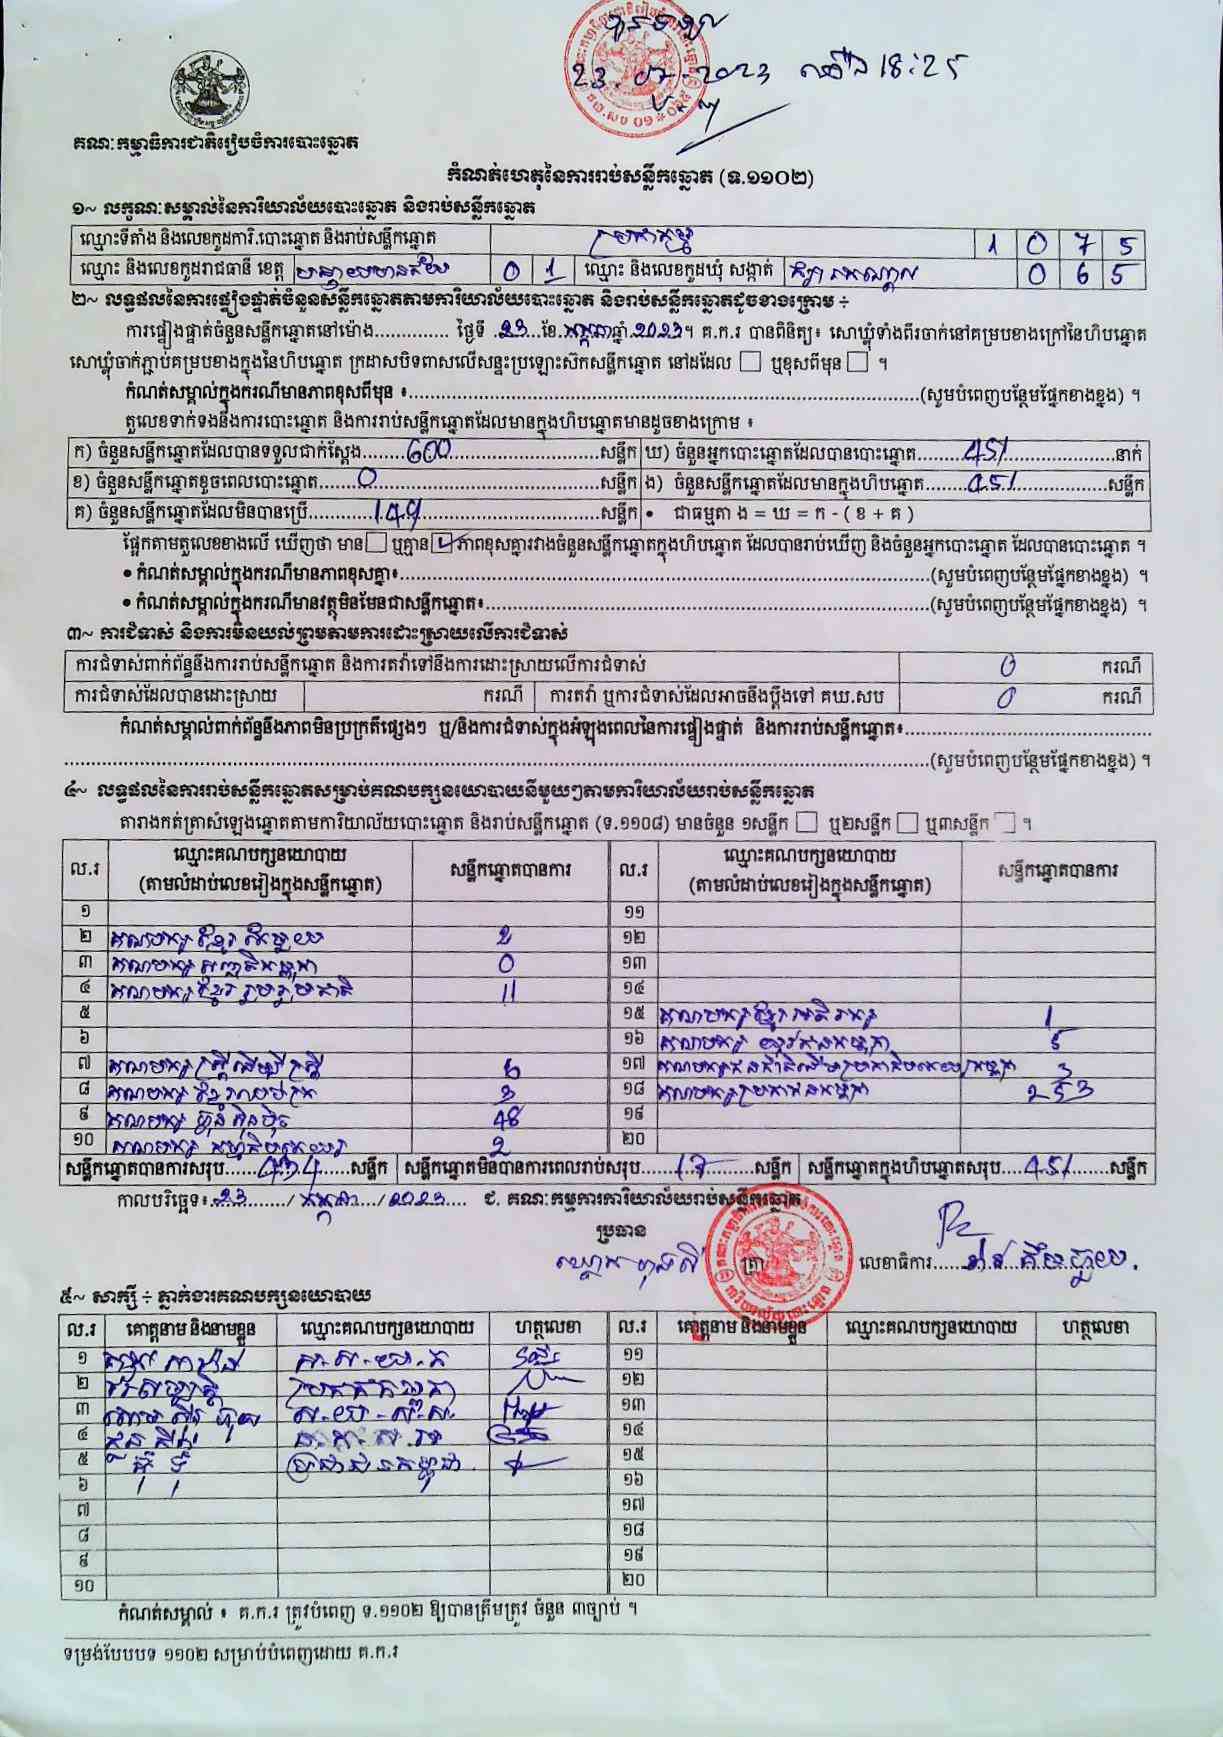 23.07.2023 18:25
គណៈកម្មាធិការជាតិរៀបចំការបោះឆ្នោត
កំណត់ហេតុនៃការរាប់សន្លឹកឆ្នោត (ទ.១១០២)
១~ លក្ខណៈសម្គាល់នៃការិយាល័យបោះឆ្នោត និងរាប់សន្លឹកឆ្នោត
ឈ្មោះទីតាំង និងលេខកូដការិ.បោះឆ្នោត និងរាប់សន្លឹកឆ្នោត 1 0 7 5
ឈ្មោះ និងលេខកូដរាជធានី ខេត្ត បន្ទាយមានជ័យ 0 1 ឈ្មោះ និងលេខកូដឃុំ សង្កាត់ 0 6 5
២~ លទ្ធផលនៃការផ្ទៀងផ្ទាត់ចំនួនសន្លឹកឆ្នោតតាមការិយាល័យបោះឆ្នោត និងរាប់សន្លឹកឆ្នោតដូចខាងក្រោម ÷
ការផ្ទៀងផ្ទាត់ចំនួនសន្លឹកឆ្នោតនៅម៉ោង.............. ថ្ងៃទី 23 ខែ កក្កដា ឆ្នាំ 2023។ គ.ក.រ បានពិនិត្យ៖ សោឃ្លុំទាំងពីរចាក់នៅគម្របខាងក្រៅនៃហិបឆ្នោត
សោឃ្លុំចាក់ភ្ជាប់គម្របខាងក្នុងនៃហិបឆ្នោត ក្រដាសបិទពាសលើសន្ទះប្រឡោះស៊កសន្លឹកឆ្នោត នៅដដែល ☐ ឬខុសពីមុន ☐ ។
កំណត់សម្គាល់ក្នុងករណីមានភាពខុសពីមុន ៖..............(សូមបំពេញបន្ថែមផ្នែកខាងខ្នង) ។
តួលេខទាក់ទងនឹងការបោះឆ្នោត និងការរាប់សន្លឹកឆ្នោតដែលមានក្នុងហិបឆ្នោតមានដូចខាងក្រោម ៖
ក) ចំនួនសន្លឹកឆ្នោតដែលបានទទួលជាក់ស្តែង........600........សន្លឹក ឃ) ចំនួនអ្នកបោះឆ្នោតដែលបានបោះឆ្នោត........451........នាក់
ខ) ចំនួនសន្លឹកឆ្នោតខូចពេលបោះឆ្នោត........0........សន្លឹក ង) ចំនួនសន្លឹកឆ្នោតដែលមានក្នុងហិបឆ្នោត........451........សន្លឹក
គ) ចំនួនសន្លឹកឆ្នោតដែលមិនបានប្រើ........149........សន្លឹក • ជាធម្មតា ង = ឃ = ក - ( ខ + គ )
ផ្អែកតាមតួលេខខាងលើ ឃើញថា មាន ☐ ឬគ្មាន ☑ ភាពខុសគ្នារវាងចំនួនសន្លឹកឆ្នោតក្នុងហិបឆ្នោត ដែលបានរាប់ឃើញ និងចំនួនអ្នកបោះឆ្នោត ដែលបានបោះឆ្នោត ។
• កំណត់សម្គាល់ក្នុងករណីមានភាពខុសគ្នា៖..............(សូមបំពេញបន្ថែមផ្នែកខាងខ្នង) ។
• កំណត់សម្គាល់ក្នុងករណីមានវត្ថុមិនមែនជាសន្លឹកឆ្នោត៖..............(សូមបំពេញបន្ថែមផ្នែកខាងខ្នង) ។
៣~ ការជំទាស់ និងការមិនយល់ព្រមតាមការដោះស្រាយលើការជំទាស់
ការជំទាស់ពាក់ព័ន្ធនឹងការរាប់សន្លឹកឆ្នោត និងការតវ៉ាទៅនឹងការដោះស្រាយលើការជំទាស់ 0 ករណី
ការជំទាស់ដែលបានដោះស្រាយ ករណី ការតវ៉ា ឬការជំទាស់ដែលអាចនឹងប្តឹងទៅ គឃ.សប 0 ករណី
កំណត់សម្គាល់ពាក់ព័ន្ធនឹងភាពមិនប្រក្រតីផ្សេងៗ ឬ/និងការជំទាស់ក្នុងអំឡុងពេលនៃការផ្ទៀងផ្ទាត់ និងការរាប់សន្លឹកឆ្នោត៖..............
..............(សូមបំពេញបន្ថែមផ្នែកខាងខ្នង) ។
៤~ លទ្ធផលនៃការរាប់សន្លឹកឆ្នោតសម្រាប់គណបក្សនយោបាយនីមួយៗតាមការិយាល័យរាប់សន្លឹកឆ្នោត
តារាងកត់ត្រាសំឡេងឆ្នោតតាមការិយាល័យបោះឆ្នោត និងរាប់សន្លឹកឆ្នោត (ទ.១១០៨) មានចំនួន ១សន្លឹក ☐ ឬ២សន្លឹក ☐ ឬ៣សន្លឹក ☐ ។
ល.រ ឈ្មោះគណបក្សនយោបាយ (តាមលំដាប់លេខរៀងក្នុងសន្លឹកឆ្នោត) សន្លឹកឆ្នោតបានការ ល.រ ឈ្មោះគណបក្សនយោបាយ (តាមលំដាប់លេខរៀងក្នុងសន្លឹកឆ្នោត) សន្លឹកឆ្នោតបានការ
១ ១១
២ គណបក្ស 2 ១២
៣ គណបក្ស 0 ១៣
៤ គណបក្ស ខ្មែររួបរួមជាតិ 11 ១៤
៥ ១៥ គណបក្ស ខ្មែរ 1
៦ ១៦ គណបក្ស យុវជនកម្ពុជា 5
៧ គណបក្ស ស្ត្រីដើម្បីស្ត្រី 6 ១៧ គណបក្ស 3
៨ គណបក្ស 3 ១៨ គណបក្សប្រជាជនកម្ពុជា 253
៩ គណបក្ស ហ៊្វុនស៊ិនប៉ិច 48 ១៩
១០ គណបក្ស 2 ២០
សន្លឹកឆ្នោតបានការសរុប......434......សន្លឹក សន្លឹកឆ្នោតមិនបានការពេលរាប់សរុប......17......សន្លឹក សន្លឹកឆ្នោតក្នុងហិបឆ្នោតសរុប......451......សន្លឹក
កាលបរិច្ឆេទ៖ 23 / កក្កដា / 2023 ជ. គណៈកម្មការការិយាល័យរាប់សន្លឹកឆ្នោត
ប្រធាន
ត្រា លេខាធិការ
៥~ សាក្សី ÷ ភ្នាក់ងារគណបក្សនយោបាយ
ល.រ គោត្តនាម និងនាមខ្លួន ឈ្មោះគណបក្សនយោបាយ ហត្ថលេខា ល.រ គោត្តនាម និងនាមខ្លួន ឈ្មោះគណបក្សនយោបាយ ហត្ថលេខា
១ ១១
២ ១២
៣ ១៣
៤ ១៤
៥ ប្រជាជនកម្ពុជា ១៥
៦ ១៦
៧ ១៧
៨ ១៨
៩ ១៩
១០ ២០
កំណត់សម្គាល់ ៖ គ.ក.រ ត្រូវបំពេញ ទ.១១០២ ឱ្យបានត្រឹមត្រូវ ចំនួន ៣ច្បាប់ ។
ទម្រង់បែបបទ ១១០២ សម្រាប់បំពេញដោយ គ.ក.រ